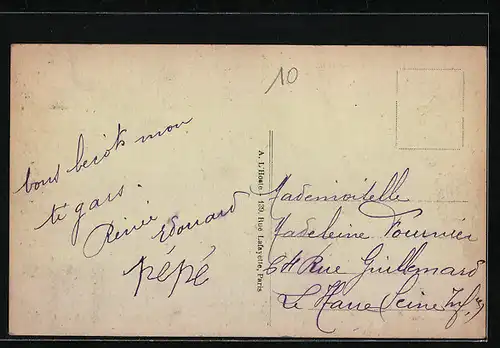 10
bons becots mon
ti gars.
Renée
Edouard
pépé
A. L'Hoste, 120, Rue Lafayette, Paris
Mademoiselle
Madeleine Fournier
64 Rue Guillemard
Le Havre Seine Inf.